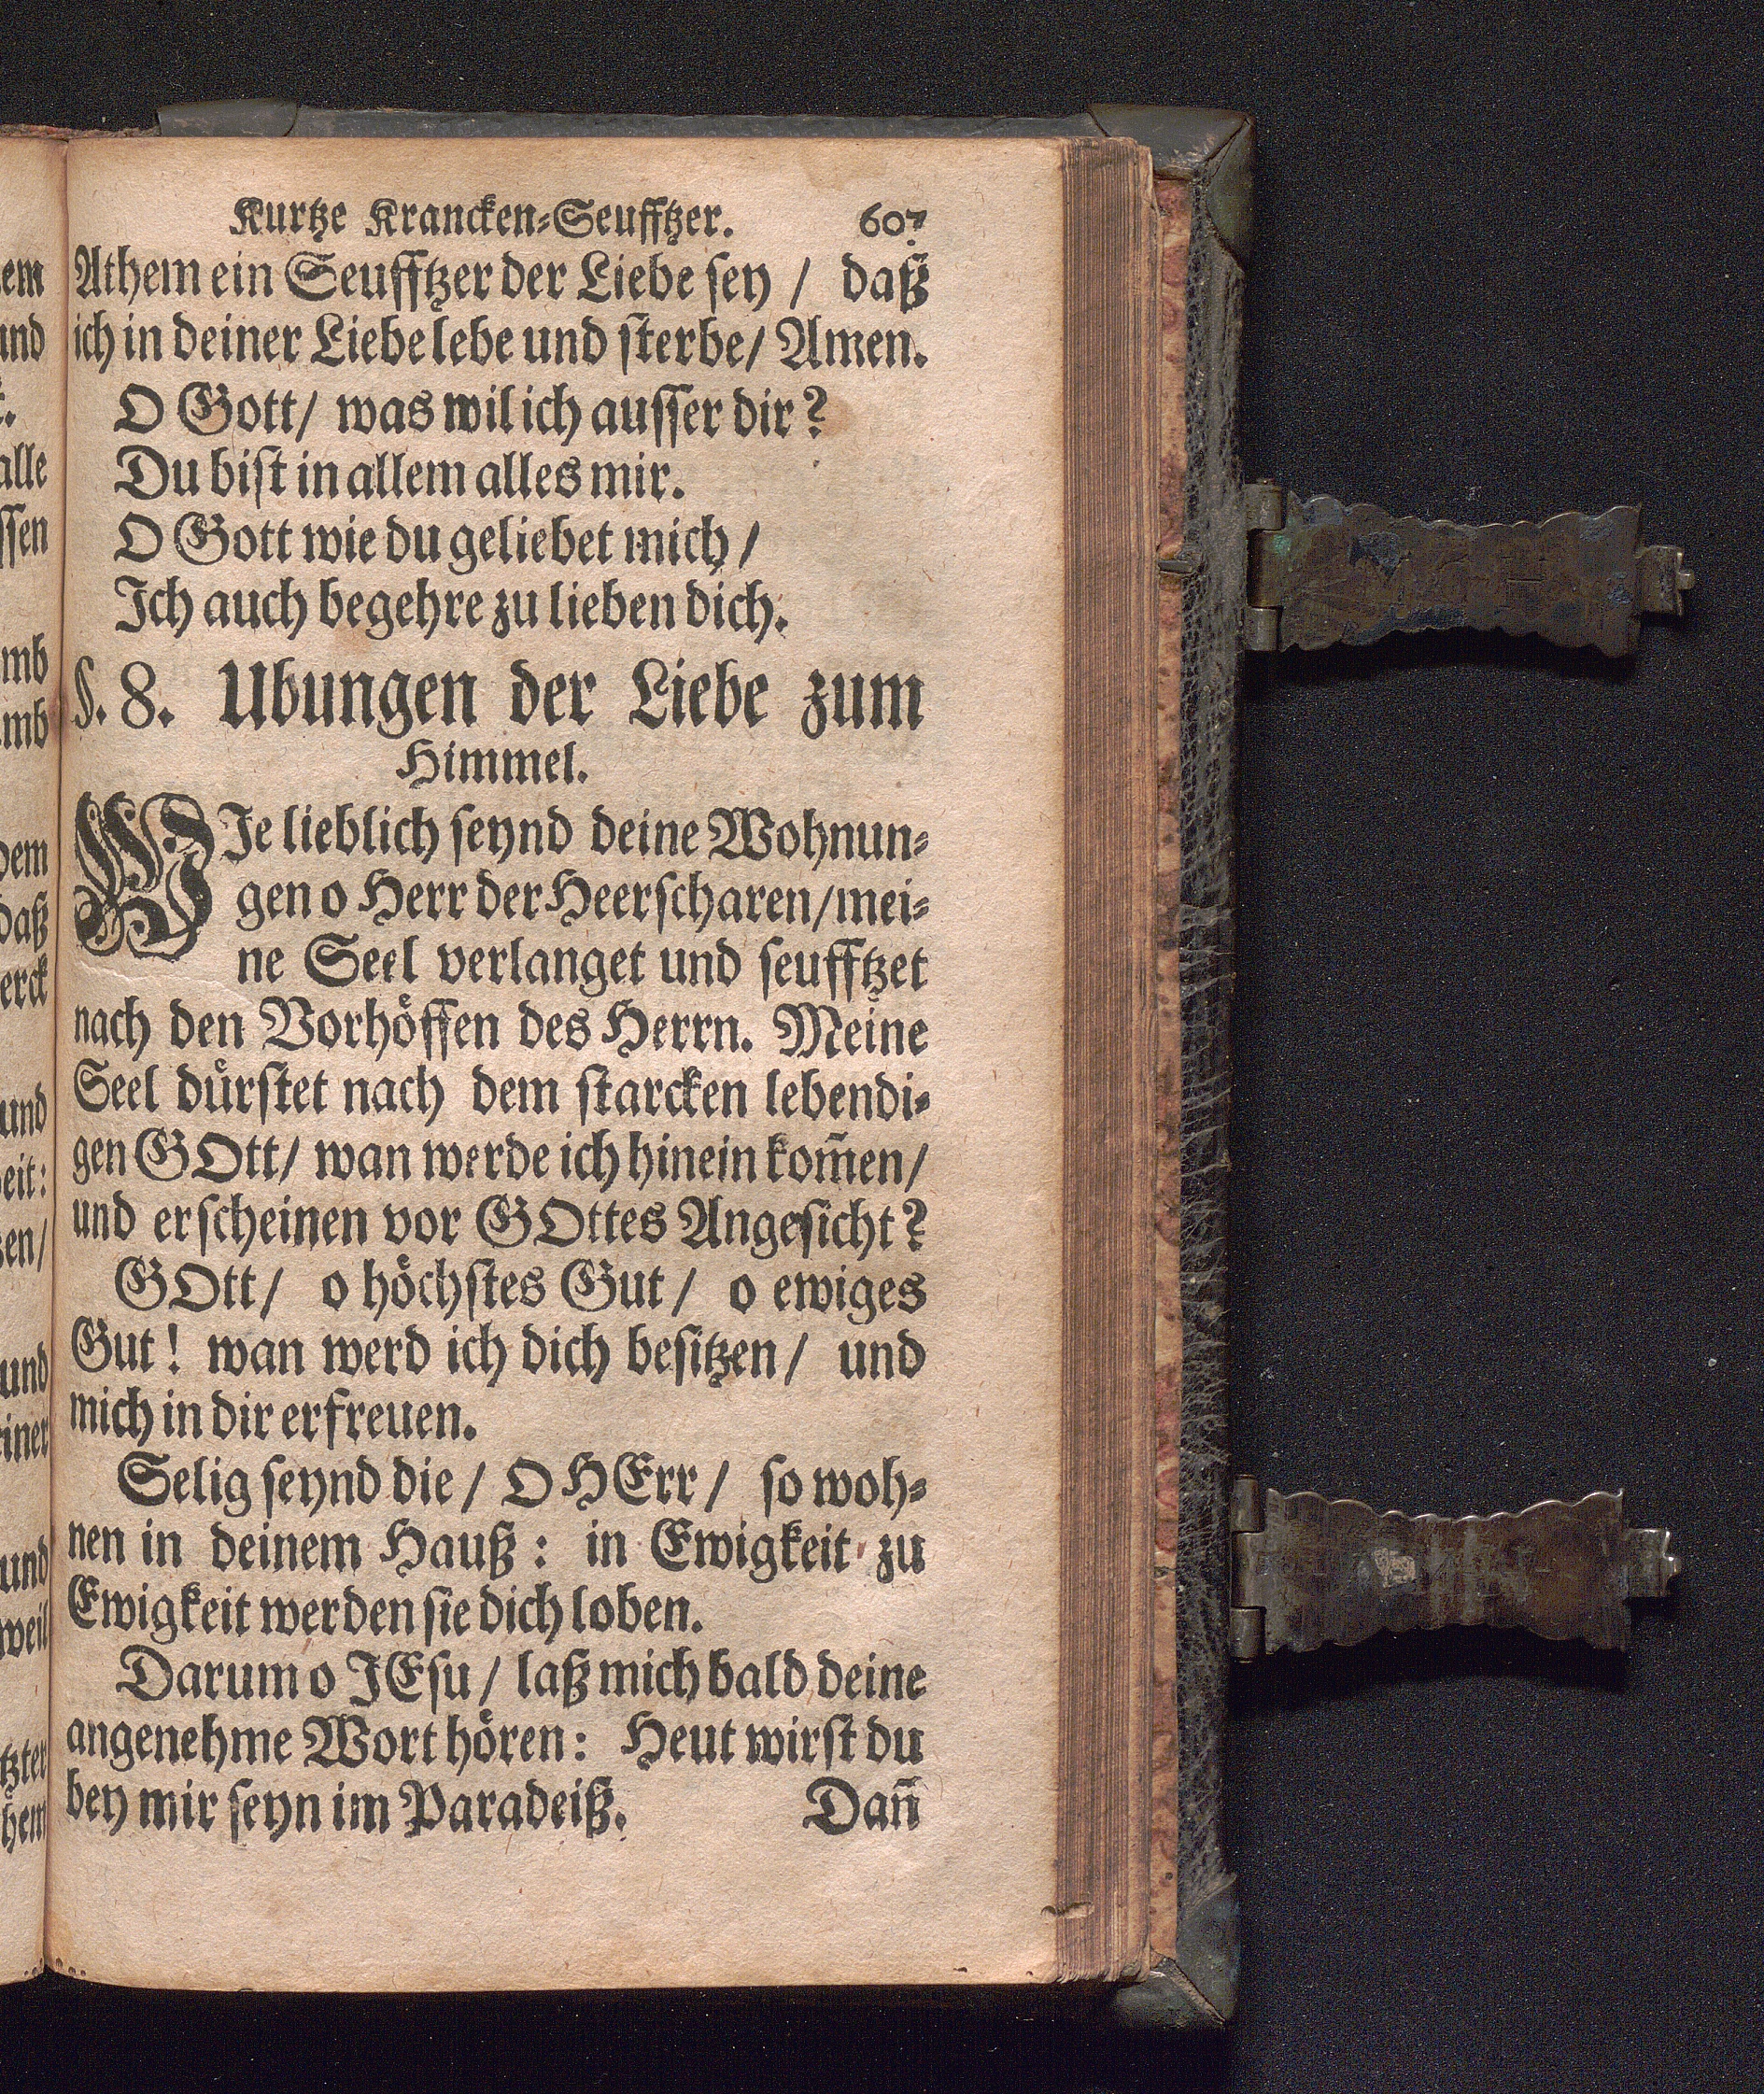 Kurtze Krancken-Seufftzer. 607
Athem ein Seufftzer der Liebe sey / daß
ich in deiner Liebe lebe und sterbe / Amen.
O Gott / was wil ich ausser dir?
Du bist in allem alles mir.
O Gott wie du geliebet mich /
Ich auch begehre zu lieben dich.
§. 8. Ubungen der Liebe zum
Himmel.
WIe lieblich seynd deine Wohnun-
gen o Herr der Heerscharen / mei-
ne Seel verlanget und seufftzet
nach den Vorhöffen des Herrn. Meine
Seel dürstet nach dem starcken lebendi-
gen GOtt / wan werde ich hinein kom̃en /
und erscheinen vor GOttes Angesicht?
GOtt / o höchstes Gut / o ewiges
Gut! wan werd ich dich besitzen / und
mich in dir erfreuen.
Selig seynd die / O HErr / so woh-
nen in deinem Hauß: in Ewigkeit zu
Ewigkeit werden sie dich loben.
Darum o JEsu / laß mich bald deine
angenehme Wort hören: Heut wirst du
bey mir seyn im Paradeiß. Dañ